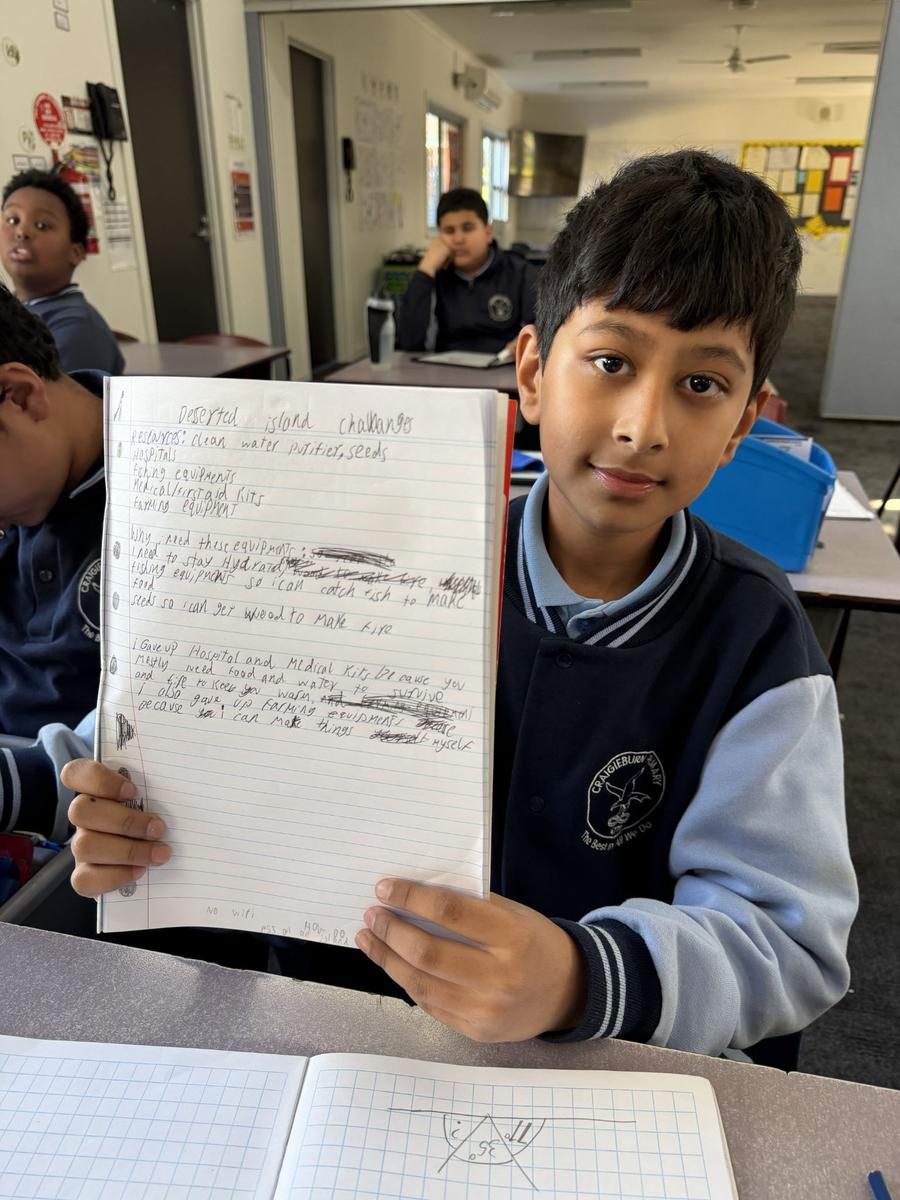 Deserted island challanges
Resources: clean water purifier, seeds
Hospitals
fishing equipments
Medical/first aid Kits
farming equipment
Why i need these equipments:
I need to stay Hydrated
fishing equipments so i can catch fish to make
food
seeds so i can get weed to make fire
i Gave up Hospital and Medical Kits, because you
mostly need food and water to survive
and fire to keep you warm,
i also gave up farming equipments
because i can make things myself
No wifi
CRAIGIEBURN PRIMARY
The Best in All We Do
CRAIG
The B
35°